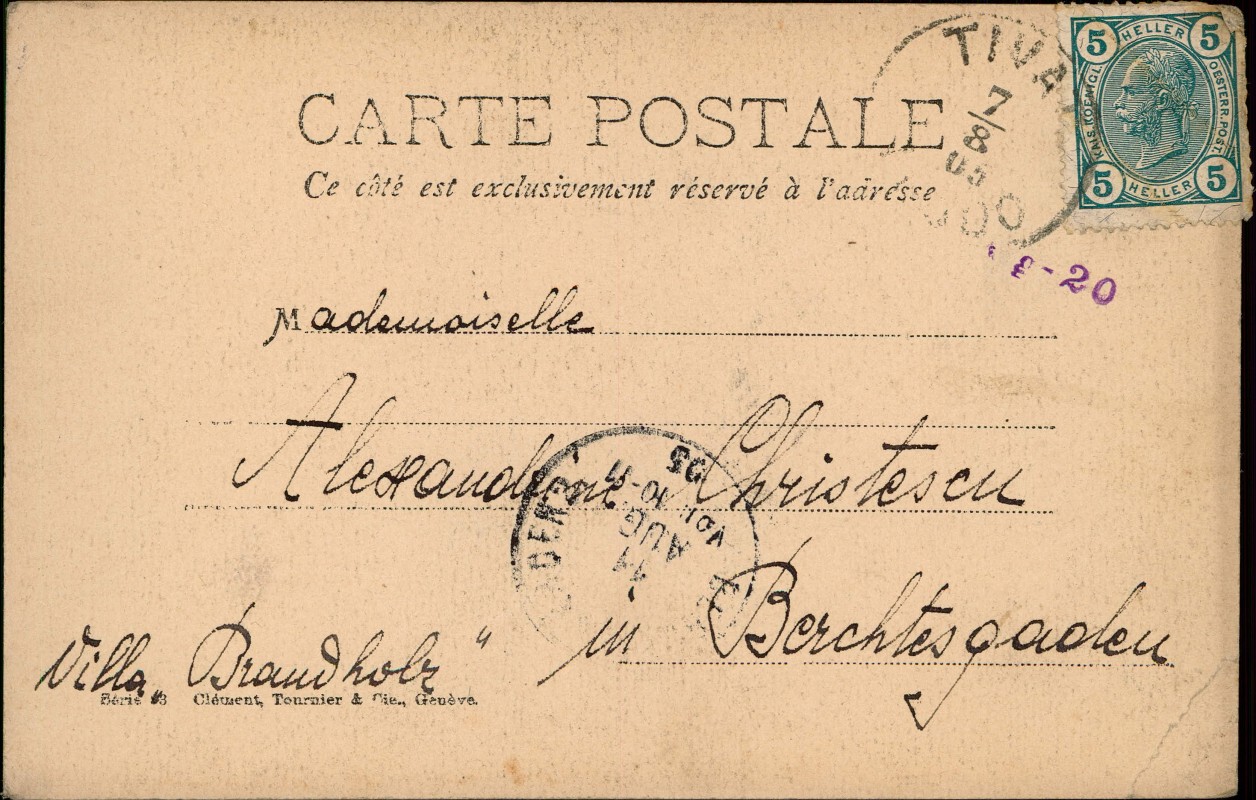 CARTE POSTALE
Ce côté est exclusivement réservé à l'adresse
TIVA
7/8
05
5 HELLER 5
KAIS. KOENIGL. OESTERR. POST.
5 HELLER 5
-20
Mademoiselle
Alexandrine Christescu
11
AUG
Vor. 10-11
05
in Berchtesgaden
Villa „Brandholz“
Série 93 Clément, Tournier & Cie., Genève.